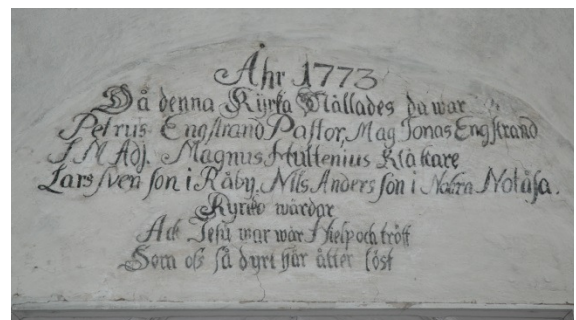 Åhr 1773
Då denna Kyrka Ställades da war
Petrus Engstrand Pastor, Mag Jonas Engstrand
S M Adj. Magnus Hultenius Klåkare
Lars sven son i Råby. Nils Anders son i Nobra Notåsa.
Kyrko wärdar
Ack Jesu war wår Hielp och tröst
Som oss så dyrt har åtter löst